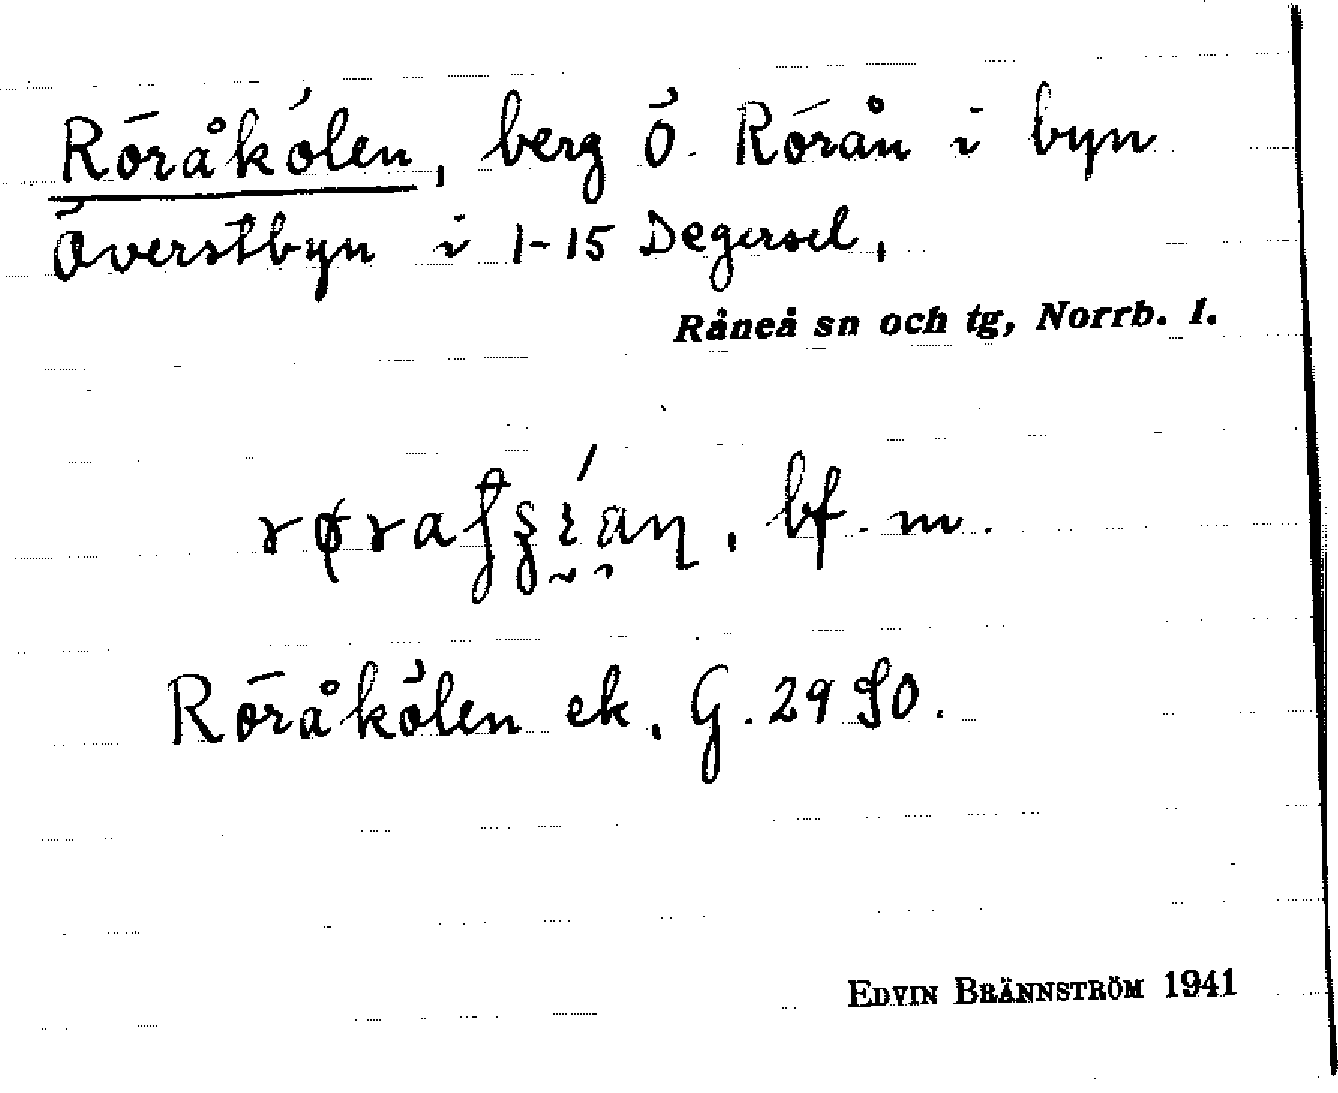 Röråkölen, berg Ö. Rörån i byn
Överstbyn i 1-15 Degersel,
Råneå sn och tg, Norrb. l.
bf. m.
Röråkölen ek. G. 29 SO.
EDVIN BRÄNNSTRÖM 1941